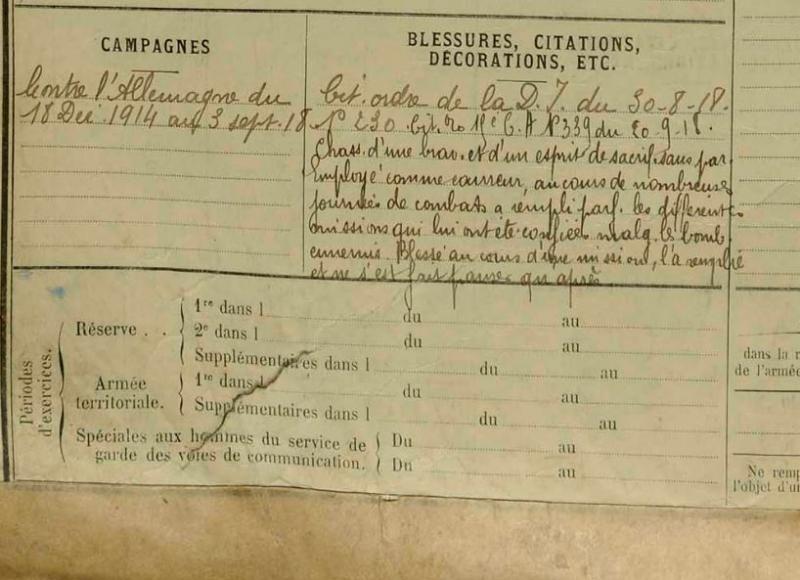 CAMPAGNES
Contre l'Allemagne du
18 Déc. 1914 au 3 sept. 18
BLESSURES, CITATIONS,
DÉCORATIONS, ETC.
Cit. ordre de la D. I. du 30-8-18.
N° 230. Cit. C. A N° 339 du 20-9-18.
Chass. d'une brav. et d'un esprit de sacrif. sans par
Employé comme coureur, au cours de nombreuses
journées de combats a rempli parf. les différentes
missions qui lui ont été confiées malg. le bomb.
ennemis. Blessé au cours d'une mission, l'a remplie
et ne s'est fait panser qu'après
Périodes
d'exercices.
Réserve . .
1re dans l du au
2e dans l du au
Supplémentaires dans l du au
Armée
territoriale.
1re dans l du au
Supplémentaires dans l du au
Spéciales aux hommes du service de
garde des voies de communication.
Du au
Du au
dans la r
de l'armée
Ne remp
l'objet d'u